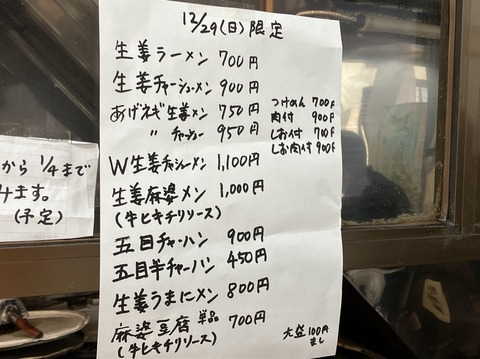 12/29(日)限定
生姜ラーメン 700円
生姜チャーシューメン 900円
あげネギ生姜メン 750円
〃 チャーシュー 950円
つけめん 700円
肉付 900円
しお付 700円
しお肉付 900円
W生姜チャシューメン 1,100円
生姜麻婆メン 1,000円
(牛ヒキチリソース)
五目チャーハン 900円
五目半チャーハン 450円
生姜うまにメン 800円
麻婆豆腐 単品 700円
(牛ヒキチリソース)
大盛100円
まし
から 1/4まで
みます。
(予定)